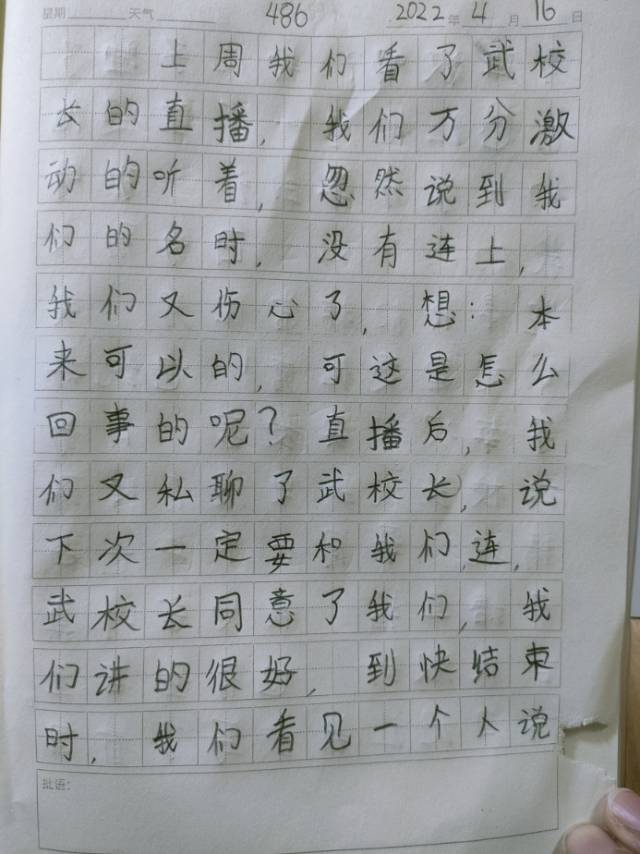 星期 天气 486 2022年4月16日
上周我们看了武校
长的直播，我们万分激
动的听着，忽然说到我
们的名时，没有连上，
我们又伤心了，想：本
来可以的，可这是怎么
回事的呢？直播后，我
们又私聊了武校长，说
下次一定要和我们连，
武校长同意了我们，我
们讲的很好，到快结束
时，我们看见一个人说
批语：